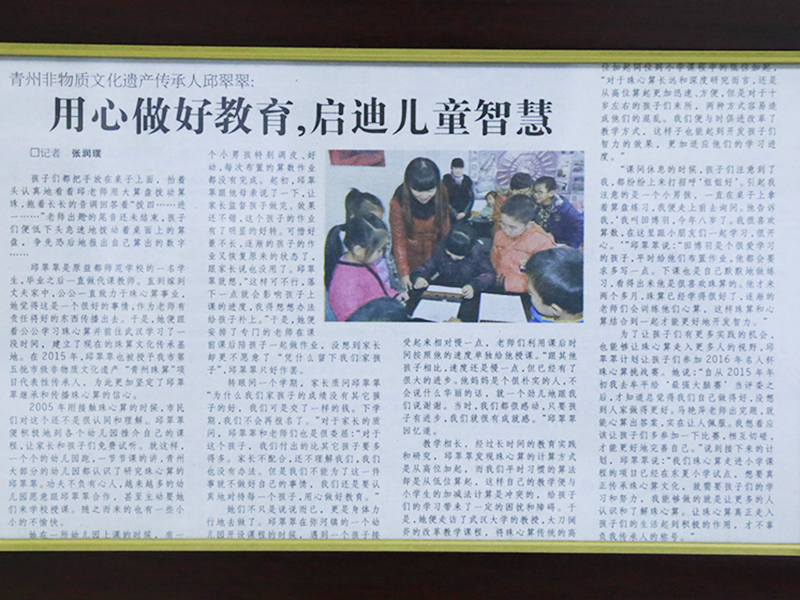 青州非物质文化遗产传承人邱翠翠:
用心做好教育,启迪儿童智慧
□记者 张润璞
孩子们都把手放在桌子上面，抬着
头认真地看着邱老师用大算盘拨动算
珠，拖着长长的音调回答着“拨四……进
一……”老师出题的尾音还未结束，孩子
们便低下头急速地拨动着桌面上的算
盘，争先恐后地报出自己算出的数字
……
邱翠翠是原益都师范学校的一名学
生，毕业之后一直做代课教师。直到嫁到
丈夫家中，公公一直致力于珠心算事业，
她觉得这是一个很好的事情，作为老师有
责任将好的东西传播出去。于是，她便跟
着公公学习珠心算并前往武汉学习了一
段时间，建立了现在的珠算文化传承基
地。在2015年，邱翠翠也被授予我市第
五批市级非物质文化遗产“青州珠算”项
目代表性传承人，为此更加坚定了邱翠翠
继承和传播珠心算的信心。
2005年刚接触珠心算的时候，市民
们对这个还不是很认同和理解。邱翠翠
便积极地到各个幼儿园推介自己的课
程，让家长和孩子们免费试听。就这样，
一个个的幼儿园跑，一节节课的讲，青州
大部分的幼儿园都认识了研究珠心算的
邱翠翠。功夫不负有心人，越来越多的幼
儿园愿意跟邱翠翠合作，甚至主动要她
们来学校授课。随之而来的也有一些小
小的不愉快。
她在一所幼儿园上课的时候，有一
个小男孩特别调皮、好
动，每次布置的算数作业
都没有完成。起初，邱翠
翠跟他母亲说了一下，让
家长监督孩子做完。效果
还不错，这个孩子的作业
有了明显的好转。可惜好
景不长，逐渐的孩子的作
业又恢复原来的状态了，
跟家长说也没用了。邱翠
翠就想，“这样可不行，落
下一点就会影响孩子上
课的进度，我得想办法
给孩子补上。”于是，她便
安排了专门的老师在课
前课后陪孩子一起做作业，没想到家长
却更不愿意了“凭什么留下我们家孩
子”，邱翠翠只好作罢。
转眼间一个学期，家长质问邱翠翠
“为什么我们家孩子的成绩没有其它孩
子的好，我们可是交了一样的钱。下学
期，我们不会再报名了。”对于家长的质
问，邱翠翠和老师们也是很委屈：“对于
这个孩子，我们付出的比其它孩子要多
得多。家长不配合，还不理解我们，我们
也没有办法。但是我们不能为了这一件
事就不做好自己的事情，我们还是要认
真地对待每一个孩子，用心做好教育。”
她们不只是说说而已，更是身体力
行地去做了。邱翠翠在弥河镇的一个幼
儿园开设课程的时候，遇到一个孩子接
受起来相对慢一点，老师们利用课后时
间按照他的速度单独给他授课。“跟其他
孩子相比，速度还是慢一点，但已经有了
很大的进步。他妈妈是个很朴实的人，不
会说什么华丽的话，就一个劲儿地跟我
们说谢谢。当时，我们都很感动，只要孩
子有进步，我们就很有成就感。”邱翠翠
回忆道。
教学相长，经过长时间的教育实践
和研究，邱翠翠发现珠心算的计算方式
是从高位加起，而我们平时习惯的算法
却是从低位算起，这样自己的教学便与
小学生的加减法计算是冲突的，给孩子
们的学习带来了一定的困扰和障碍。于
是，她便走访了武汉大学的教授，大刀阔
斧的改革教学课程，将珠心算传统的高
位加起向往的小学课程中的低位加起，
“对于珠心算长远和深度研究而言，还是
从高位算起更加迅速、方便，但是对于十
岁左右的孩子们来所，两种方式容易造
成他们的混乱。我们便与时俱进改革了
教学方式，这样子也能起到开发孩子们
智力的效果，更加适应他们的学习进
度。”
“课间休息的时候，孩子们注意到了
我，都纷纷上来打招呼‘姐姐好’，引起我
注意的是一个小男孩，一直在桌子上拿
着算盘练习，我便走上前去询问，他告诉
我，‘我叫田博羽，今年八岁了。我很喜欢
算数，在这里跟小朋友们一起学习，很开
心。’”邱翠翠说：“田博羽是个很爱学习
的孩子，平时给他们布置作业，他都会要
求多写一点。下课也是自己默默地做练
习，看得出来他是很喜欢珠算的。他才来
两个多月，珠算已经学得很好了，逐渐的
老师们会训练他们心算，这样珠算和心
算结合到一起才能更好地开发智力。”
为了让孩子们有更多实践的机会，
也能够让珠心算走入更多人的视野，邱翠
翠计划让孩子们参加2016年名人杯
珠心算挑战赛。她说：“自从2015年年
初我去牟平给‘最强大脑赛’当评委之
后，才知道总觉得我们自己做得好，没想
到人家做得更好。马艳萍老师出完题，就
能心算出答案，实在让人佩服。我想着应
该让孩子们多参加一下比赛，相互切磋，
才能更好地完善自己。”说到接下来的计
划，邱翠翠说：“我们珠心算走进小学课
程的项目已经在东夏小学试点，想要真
正传承珠心算文化，就需要孩子们的学
习和努力，我能够做的就是让更多的人
认识和了解珠心算，让珠心算真正走入
孩子们的生活起到积极的作用，才不事
负我传承人的称号。”